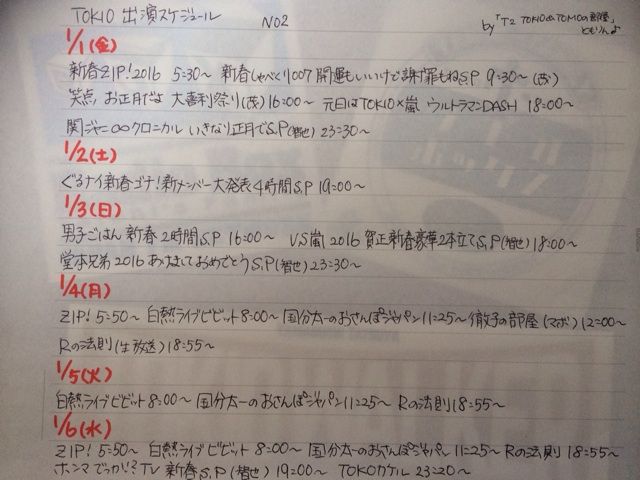 TOKIO 出演スケジュール NO2 by「T2 TOKIO&TOMOの部屋」
ともりんよ
1/1(金)
新春ZIP!2016 5:30〜 新春しゃべくり007 開運もいいけど謝罪もねS.P 9:30〜(茂)
笑点お正月だよ 大喜利祭り(茂)16:00〜 元日はTOKIO×嵐 ウルトラマンDASH 18:00〜
関ジャニ∞クロニクル いきなり正月でS.P(智也)23:30〜
1/2(土)
ぐるナイ新春ゴチ!新メンバー大発表4時間S.P 19:00〜
1/3(日)
男子ごはん 新春 2時間S.P 16:00〜 V.S嵐 2016 賀正新春豪華2本立てS.P(智也)18:00〜
堂本兄弟2016あけましておめでとうS.P(智也)23:30〜
1/4(月)
ZIP! 5:50〜 白熱ライブビビット8:00〜 国分太一のおさんぽジャパン11:25〜 徹子の部屋(マボ)12:00〜
Rの法則(生放送)18:55〜
1/5(火)
白熱ライブビビット8:00〜 国分太一のおさんぽジャパン11:25〜 Rの法則18:55〜
1/6(水)
ZIP! 5:50〜 白熱ライブビビット 8:00〜 国分太一のおさんぽジャパン 11:25〜 Rの法則 18:55〜
ホンマでっか!?TV 新春S.P(智也) 19:00〜 TOKIOカケル 23:20〜